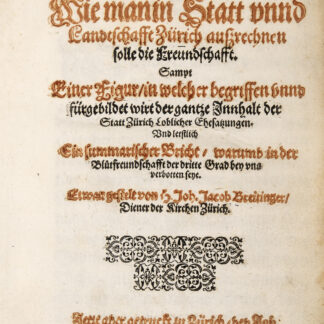 Wie man in Statt vnnd
Landtschafft Zürich außrechnen
solle die Freundschafft.
Sampt
Einer Figur / in welcher begriffen vnnd
fürgebildet wirt der gantze Innhalt der
Statt Zürich Loblicher Ehesatzungen.
Vnd letstlich
Ein summarischer Bericht / warumb in der
Blutfreundschafft der dritte Grad bey vns
verbotten seye.
Etwan gestelt von H. Joh. Jacob Breitinger /
Diener der Kirchen Zürich.
Jetzt aber getruckt in Zürich / bey Joh: